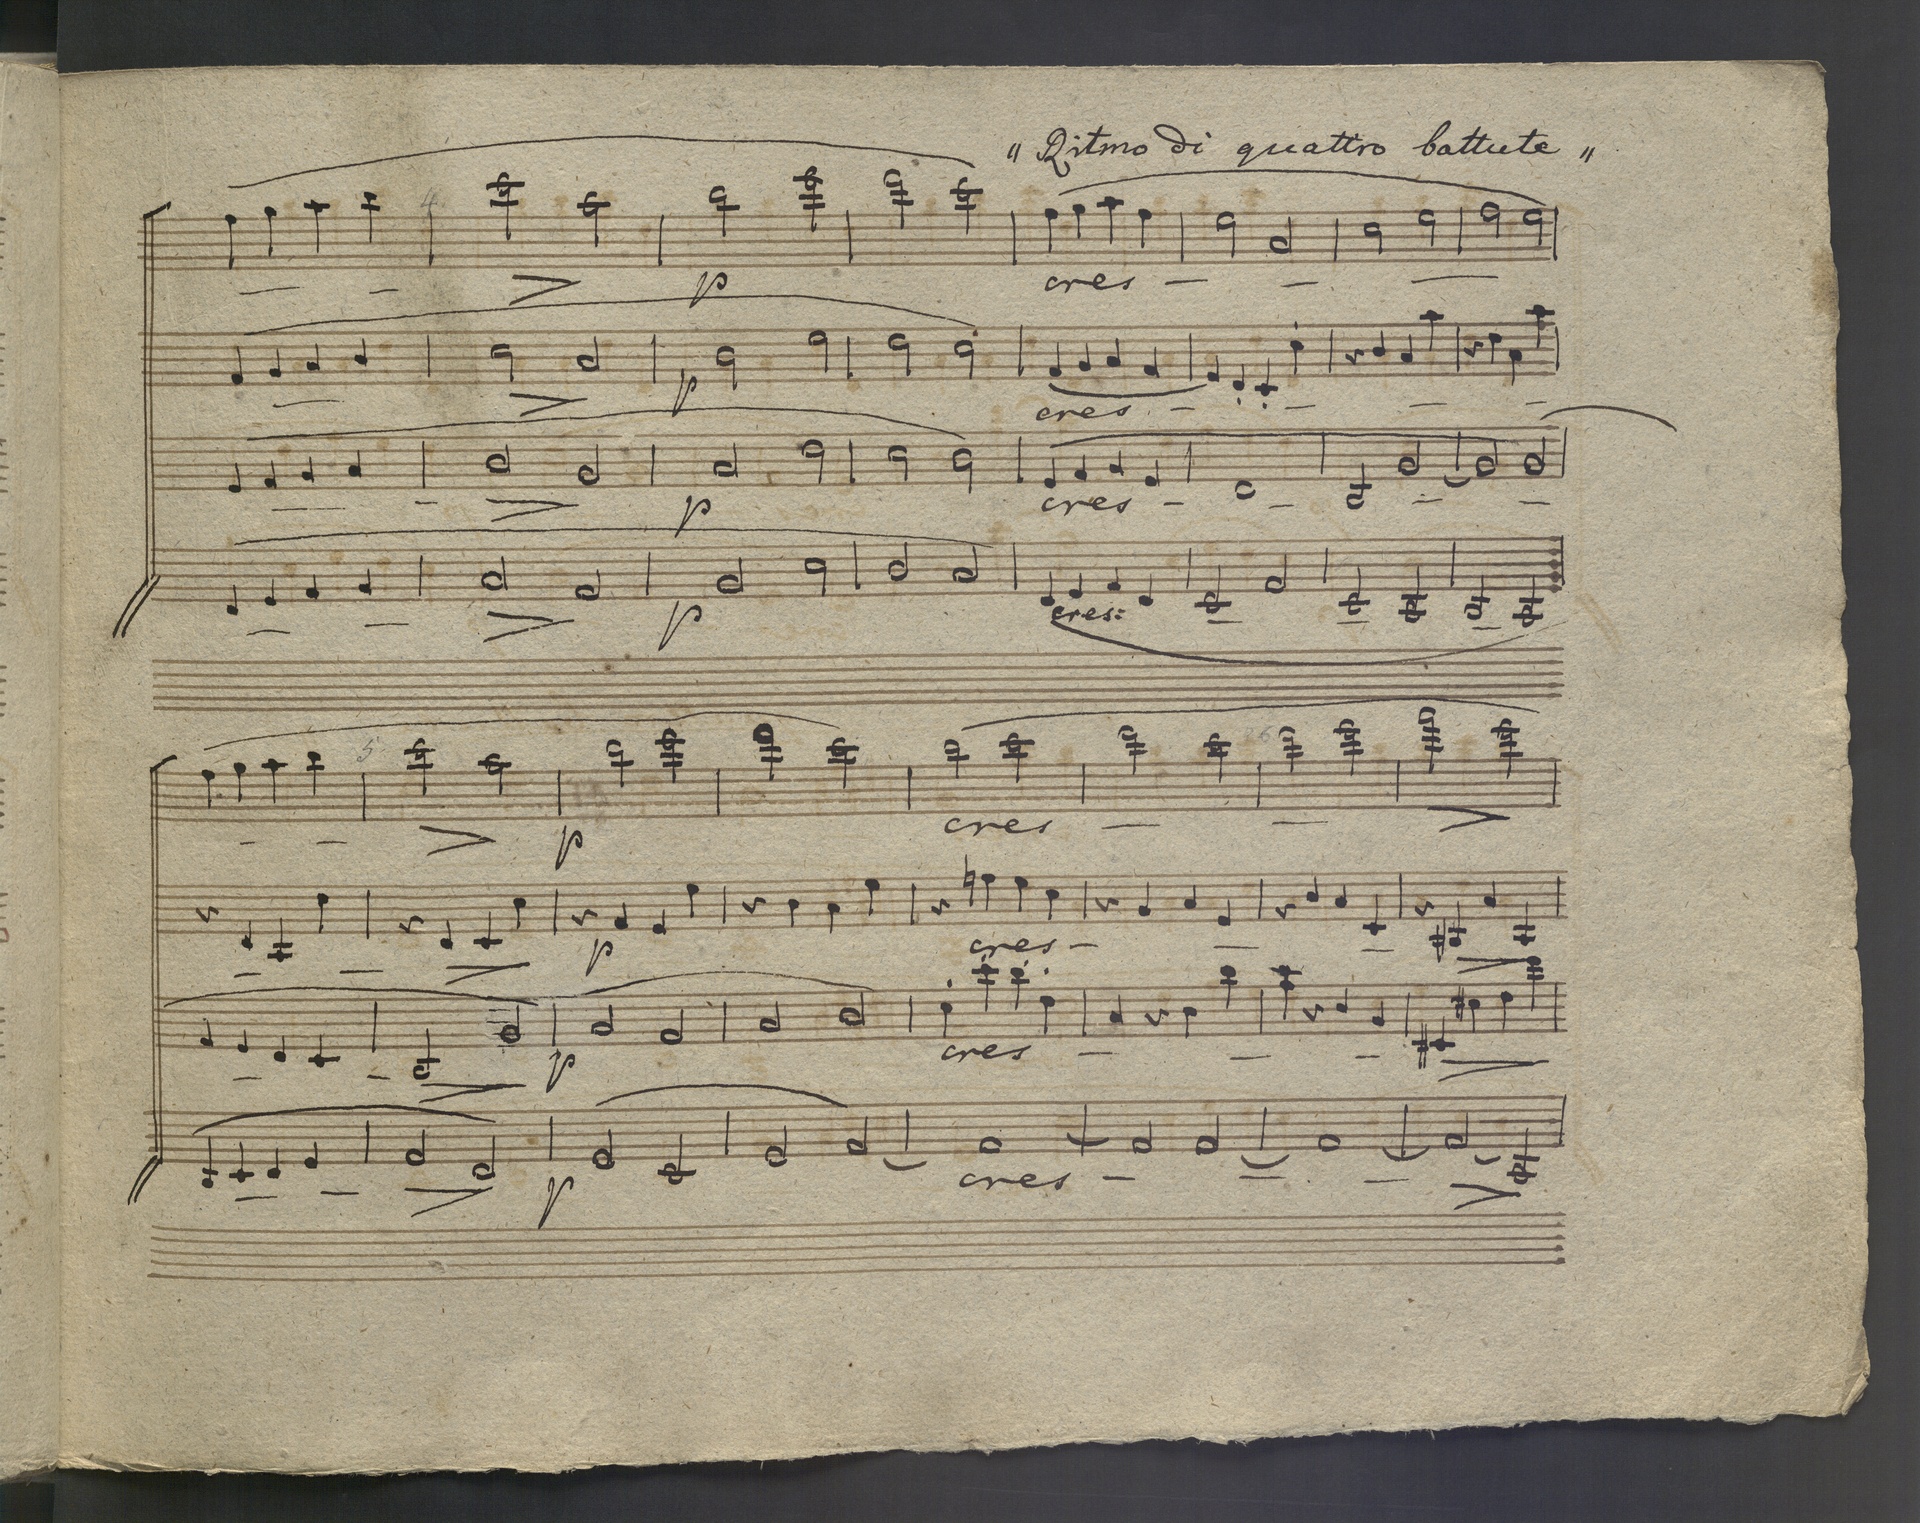 „ Ritmo di quattro battute „
4
p
cres
p
cres
p
cres
p
cres:
5
p
cres
p
cres
p
cres
p
cres